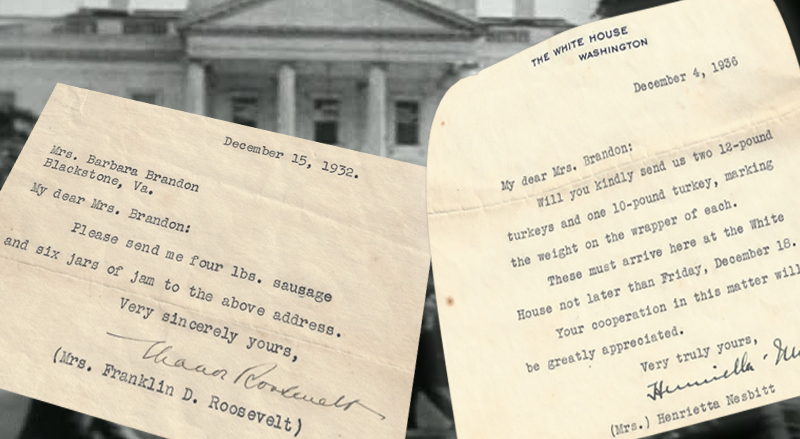 December 15, 1932.
Mrs. Barbara Brandon
Blackstone, Va.
My dear Mrs. Brandon:
Please send me four lbs. sausage
and six jars of jam to the above address.
Very sincerely yours,
Eleanor Roosevelt
(Mrs. Franklin D. Roosevelt)
THE WHITE HOUSE
WASHINGTON
December 4, 1936
My dear Mrs. Brandon:
Will you kindly send us two 12-pound
turkeys and one 10-pound turkey, marking
the weight on the wrapper of each.
These must arrive here at the White
House not later than Friday, December 18.
Your cooperation in this matter will
be greatly appreciated.
Very truly yours,
Henrietta
(Mrs.) Henrietta Nesbitt